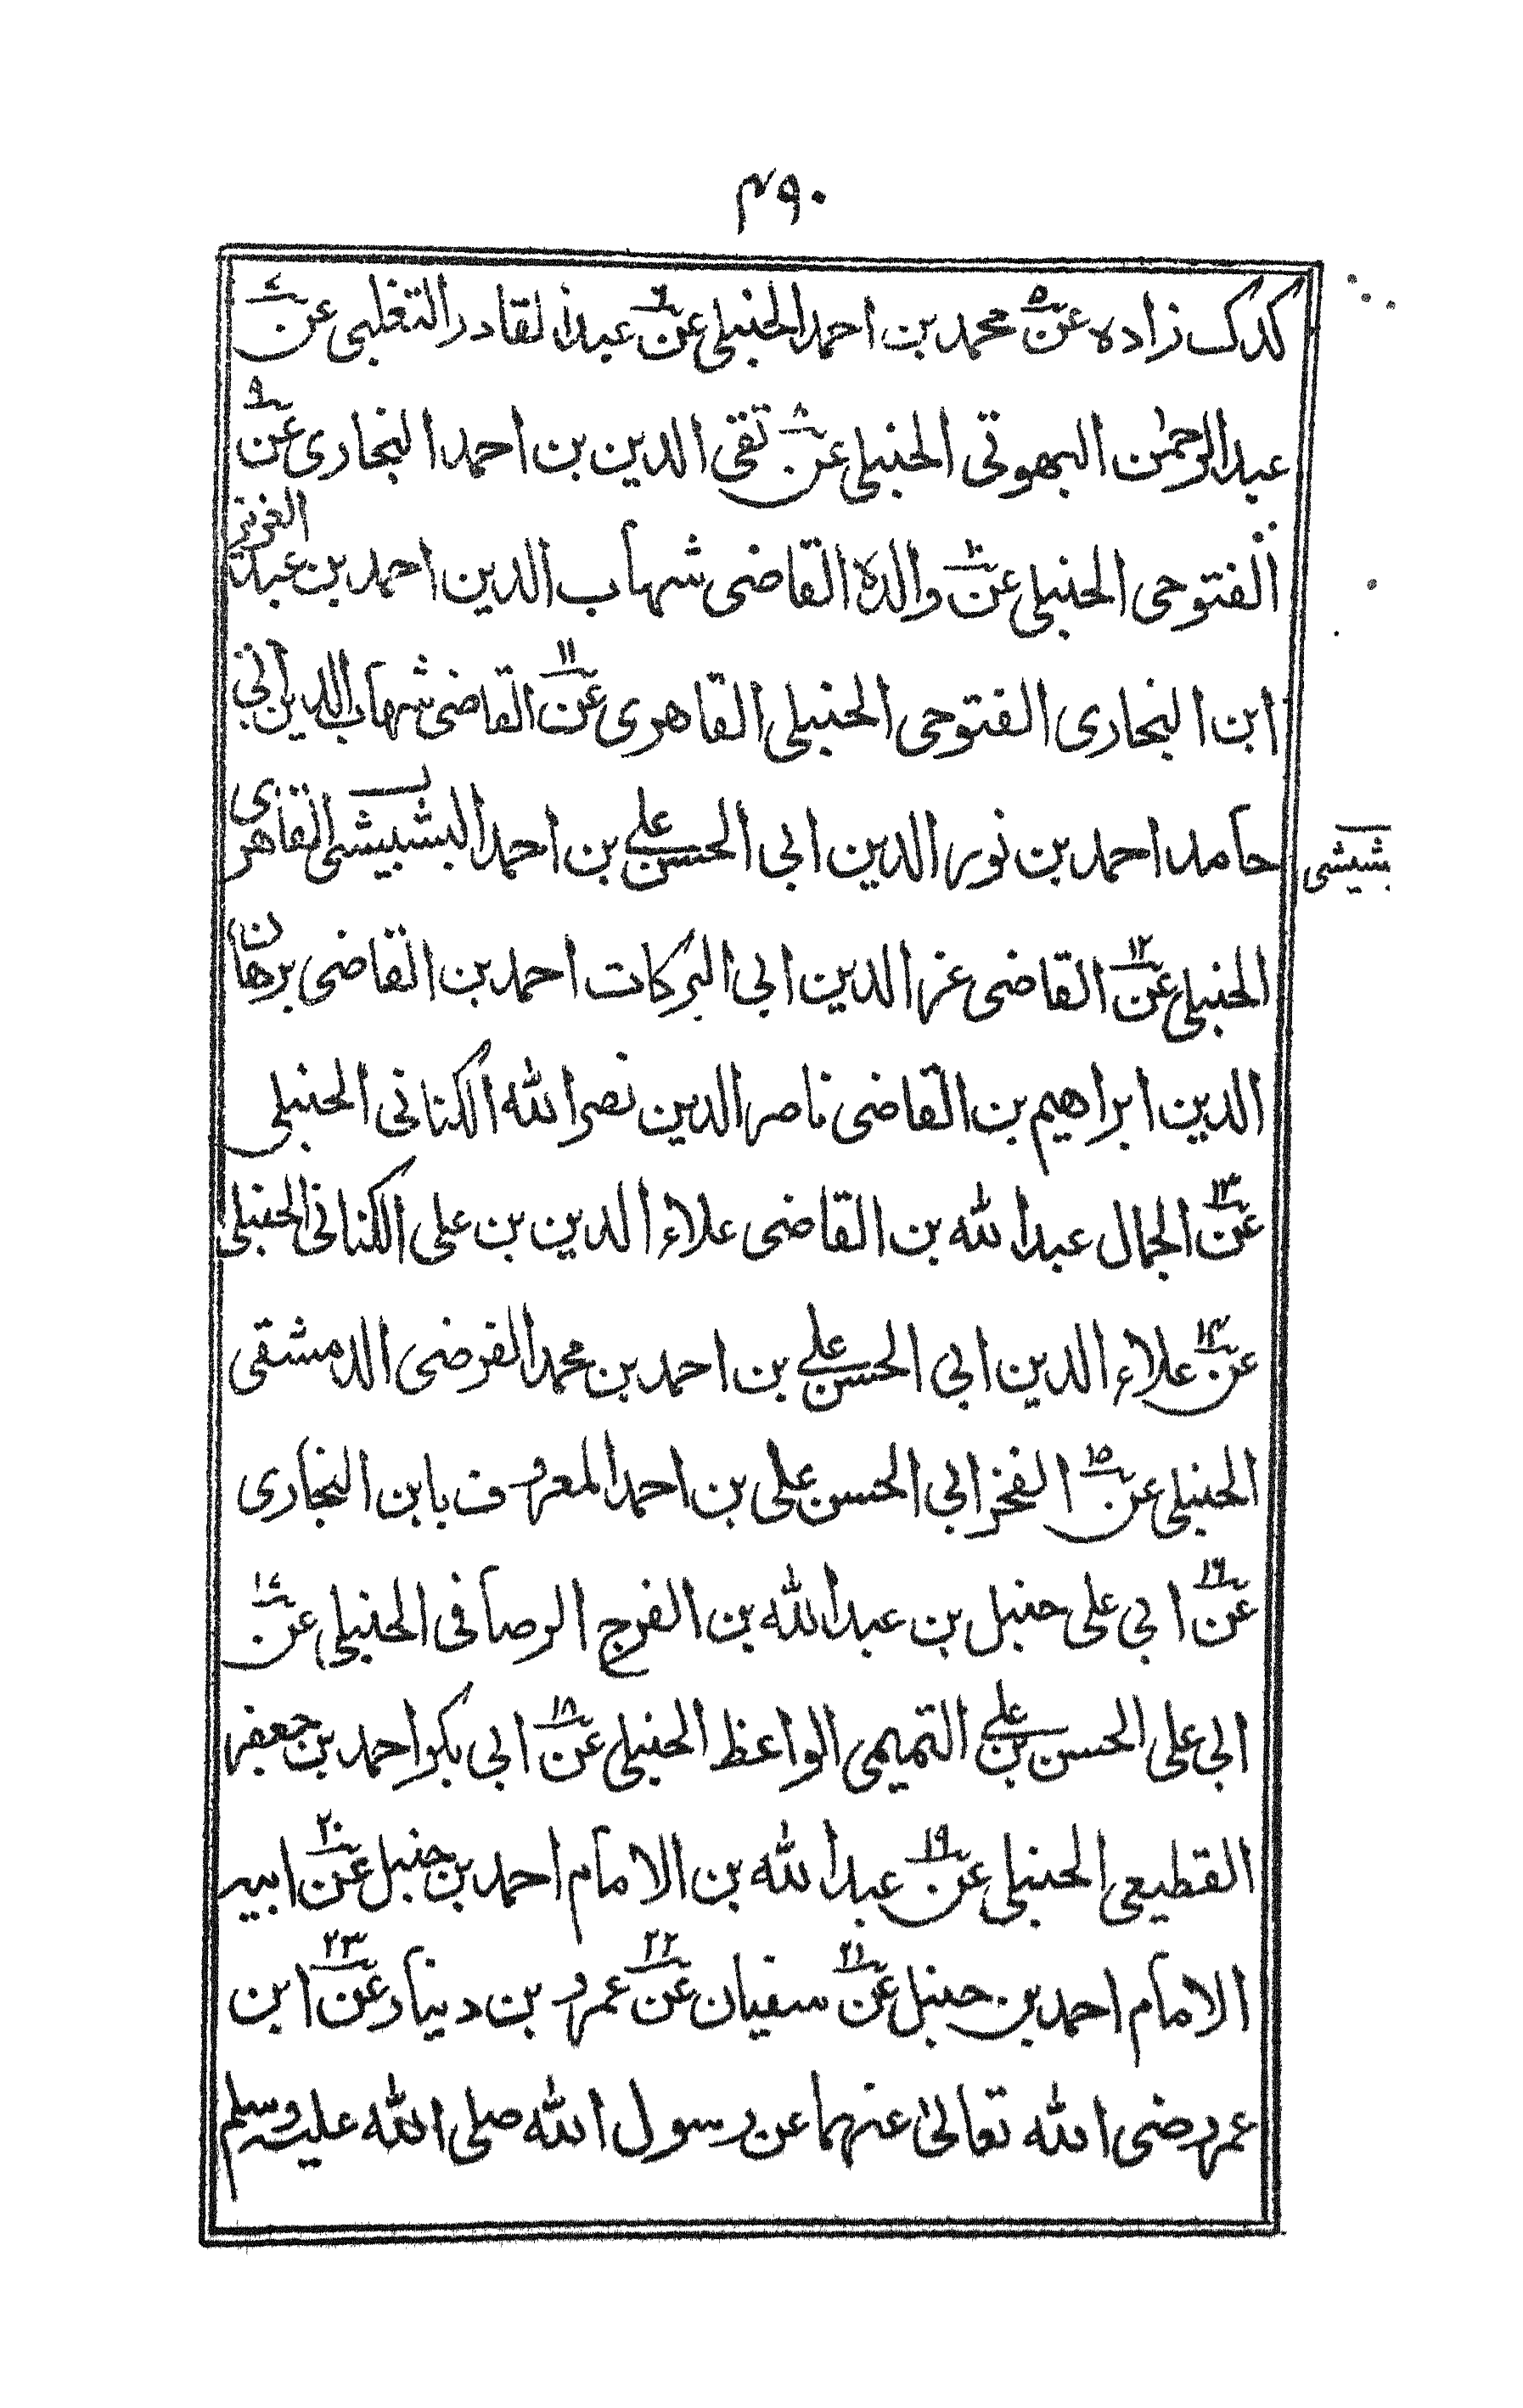 ۴۹۰
كدك زاده عن۵ محمد بن احمد الحنبلى عن۶ عبد القادر التغلبى عن۷
عبد الرحمٰن البهوتى الحنبلى عن۸ تقى الدين بن احمد النجارى عن۹
الفتوحى الحنبلى عن۱۰ والده القاضى شهاب الدين احمد بن عبد العزيز
ابن النجارى الفتوحى الحنبلى القاهرى عن۱۱ القاضى شهاب الدين ابى
حامد احمد بن نور الدين ابى الحسن على بن احمد البشبيشى القاهرى
بشيشى
الحنبلى عن۱۲ القاضى عز الدين ابى البركات احمد بن القاضى برهان
الدين ابراهيم بن القاضى ناصر الدين نصر الله الكنانى الحنبلى
عن۱۳ الجمال عبد الله بن القاضى علاء الدين بن على الكنانى الحنبلى
عن۱۴ علاء الدين ابى الحسن على بن احمد بن محمد الفرضى الدمشقى
الحنبلى عن۱۵ الفخر ابى الحسن على بن احمد المعروف بابن النجارى
عن۱۶ ابى على حنبل بن عبد الله بن الفرج الرصافى الحنبلى عن۱۷
ابى على الحسن بن على التميمى الواعظ الحنبلى عن۱۸ ابى بكر احمد بن جعفر
القطيعى الحنبلى عن۱۹ عبد الله بن الامام احمد بن حنبل عن۲۰ ابيه
الامام احمد بن حنبل عن۲۱ سفيان عن۲۲ عمرو بن دينار عن۲۳ ابن
عمر رضى الله تعالىٰ عنهما عن رسول الله صلى الله عليه وسلم